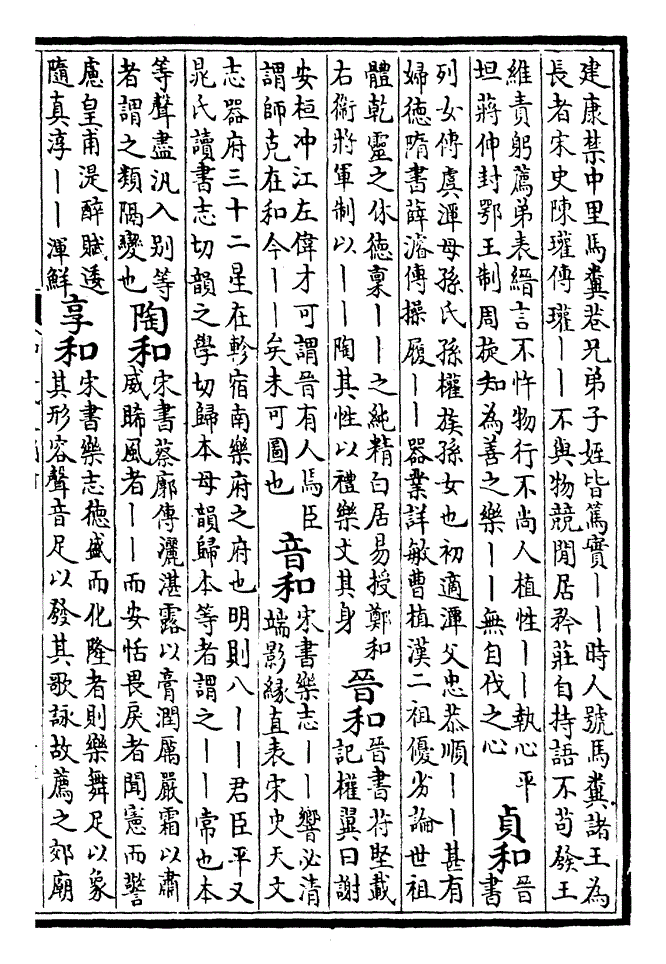 建康禁中里馬糞巷兄弟子姪皆篤實丨丨時人號馬糞諸王為
長者宋史陳瓘傳瓘丨丨不與物競閒居矜莊自持語不苟發王
維責躬薦弟表縉言不忤物行不尚人植性丨丨執心平
坦蔣伸封鄂王制周旋知為善之樂丨丨無自伐之心
貞和
晉
書
列女傳虞潭母孫氏孫權族孫女也初適潭父忠恭順丨丨甚有
婦德隋書薛濬傳操履丨丨器業詳敏曹植漢二祖優劣論世祖
體乾靈之休德稟丨丨之純精白居易授鄭和
右衛將軍制以丨丨陶其性以禮樂文其身
晉和
晉書苻堅載
記權翼曰謝
安桓冲江左偉才可謂晉有人焉臣
謂師克在和今丨丨矣未可圖也
音和
宋書樂志丨丨響必清
端影緣直表宋史天文
志器府三十二星在軫宿南樂府之府也明則八丨丨君臣平又
晁氏讀書志切韻之學切歸本母韻歸本等者謂之丨丨常也本
等聲盡汎入别等
者謂之類隔變也
陶和
宋書蔡廓傳灑湛露以膏潤厲嚴霜以肅
威晞風者丨丨而安恬畏戾者聞憲而警
慮皇甫湜醉賦逶
隨真淳丨丨渾鮮
享和
宋書樂志德盛而化隆者則樂舞足以象
其形容聲音足以發其歌詠故薦之郊廟